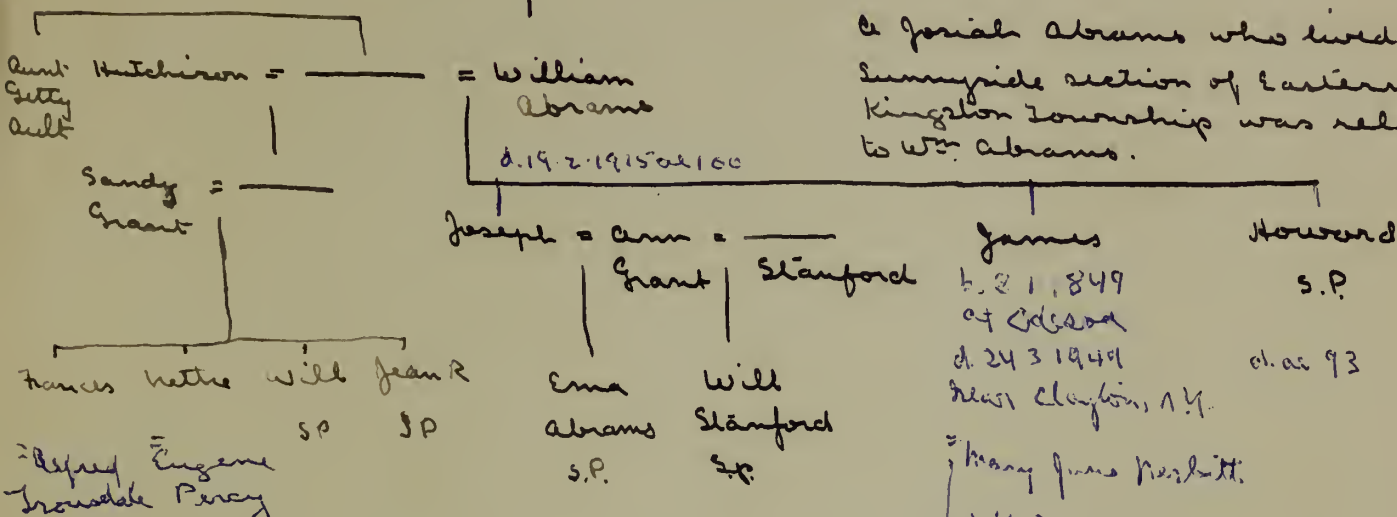 a Josiah Abrams who lived
Sunnyside section of Eastern
Kingston Township was rel
to Wm. Abrams.
Aunt Getty Ault
Hutchison = = William Abrams
d. 19.2.1915 ae 100
Sandy Grant =
Joseph = Ann Grant = Stanford
James
b. 2 1 1849
at
d. 24 3 1949
Near Clayton, N.Y.
=
Mary Jane Nesbitt
Howard
S.P.
d. ae 93
Frances
= Alfred
Trousdale
Nettie
= Eugene
Percy
Will
S P
Jean R
S P
Ema
Abrams
S.P.
Will
Stanford
S.P.